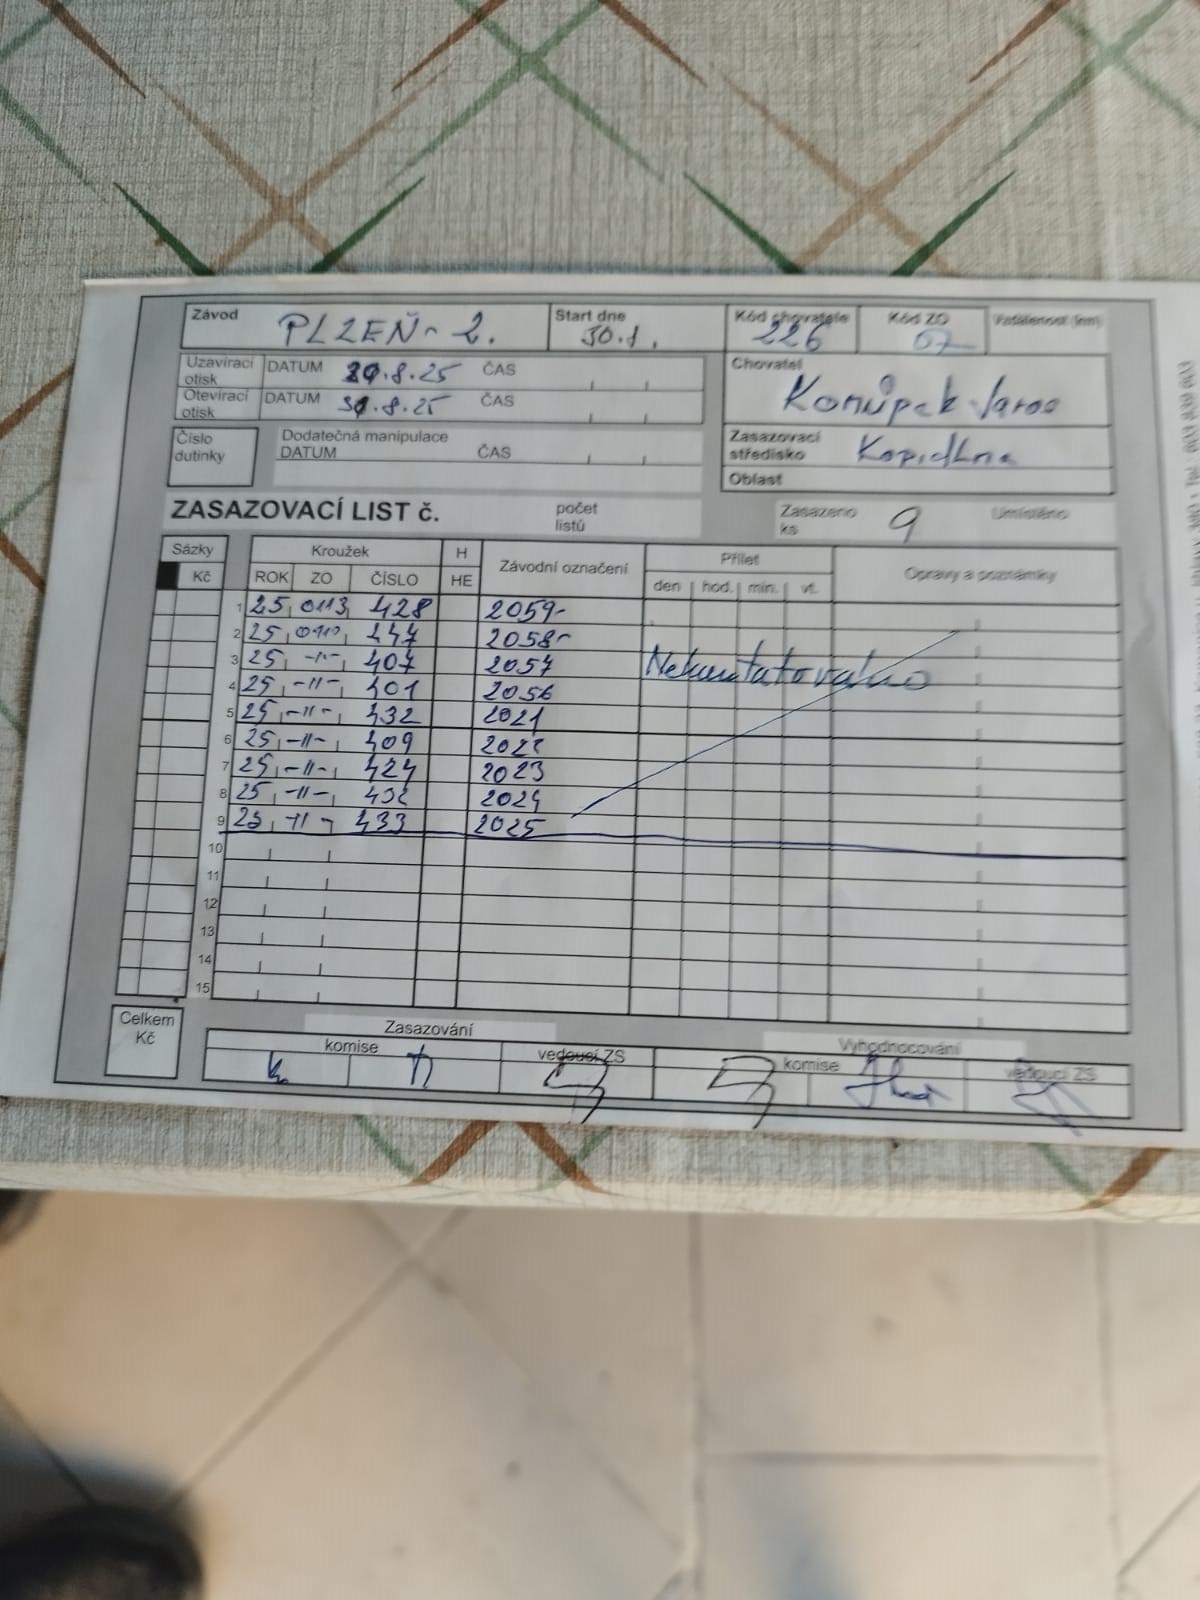 Závod PLZEŇ - 2. Start dne 30.8. Kód chovatele 226 Kód ZO 07 Vzdálenost (km)
Uzavírací otisk DATUM .8.25 ČAS
Otevírací otisk DATUM .8.25 ČAS
Chovatel Konůpek
Číslo dutinky
Dodatečná manipulace
DATUM ČAS
Zasazovací středisko Kopidlno
Oblast
ZASAZOVACÍ LIST č. počet listů Zasazeno ks 9 Umístěno
Sázky Kroužek H Závodní označení Přílet Opravy a poznámky
Kč ROK ZO ČÍSLO HE den hod. min. vt.
1 25 0113 428 2059-
2 25 0110 447 2058-
3 25 -11- 407 2057 Nekonstatováno
4 25 -11- 401 2056
5 25 -11- 432 2021
6 25 -11- 409 2022
7 25 -11- 424 2023
8 25 -11- 2024
9 25 -11- 433 2025
10
11
12
13
14
15
Celkem Kč
Zasazování Vyhodnocování
komise vedoucí ZS komise vedoucí ZS